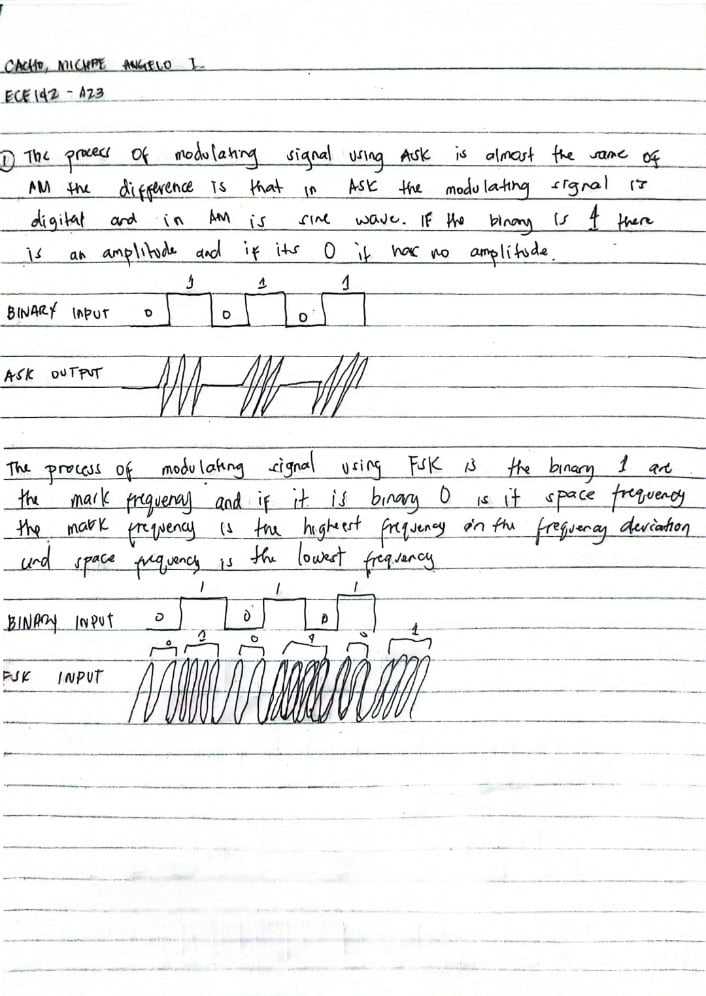 CACHO, MICHAE ANGELO I.
ECE142 - A23
① The process of modulating signal using ASK is almost the same of
AM the difference is that in ASK the modulating signal is
digital and in AM is sine wave. IF the binary is 1 there
is an amplitude and if its 0 it has no amplitude.
1 1 1
BINARY INPUT 0 0 0
ASK OUTPUT
The process of modulating signal using FSK is the binary 1 are
the mark frequency and if it is binary 0 is it space frequency
the mark frequency is the highest frequency on the frequency deviation
and space frequency is the lowest frequency
1 1 1
BINARY INPUT 0 0 0
0 1 0 1 0 1
FSK INPUT